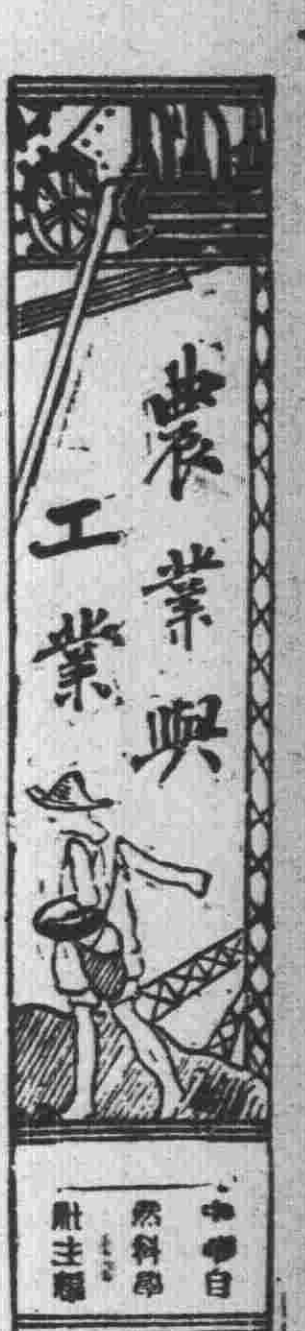 農業與
工業
中華自
然科學
社主編